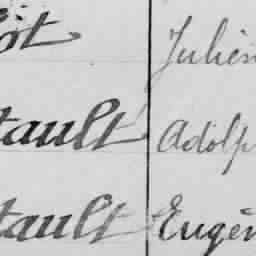 ôt Julien
tault Adolp
tault Eugèn